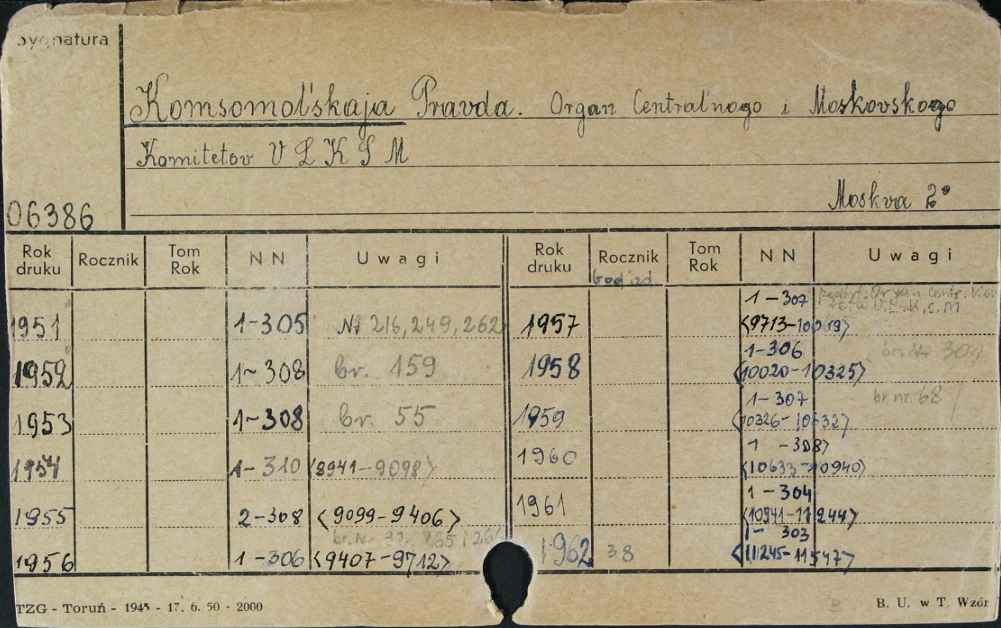 Sygnatura
Komsomol'skaja Pravda. Organ Central'nogo i Moskovskogo
Komitetov V L K S M
Moskva 2°
06386
Rok druku Rocznik Tom Rok N N Uwagi Rok druku Rocznik Tom Rok N N Uwagi
1951 1-305 Nr 216, 249, 262 1957 1-307 <9713-10019>
1952 1-308 br. 159 1958 1-306 <10020-10325>
1953 1-308 br. 55 1959 1-307 <10326-10632> br. nr. 68
1954 1-310 <8941-9098> 1960 1-308> <10633-10940>
1955 2-308 <9099-9406> 1961 1-304 <10941-11244>
1956 1-306 <9407-9712> 1962 38 1-303 <11245-11547>
TZG - Toruń - 1945 - 17. 6. 50 - 2000 B. U. w T. Wzór